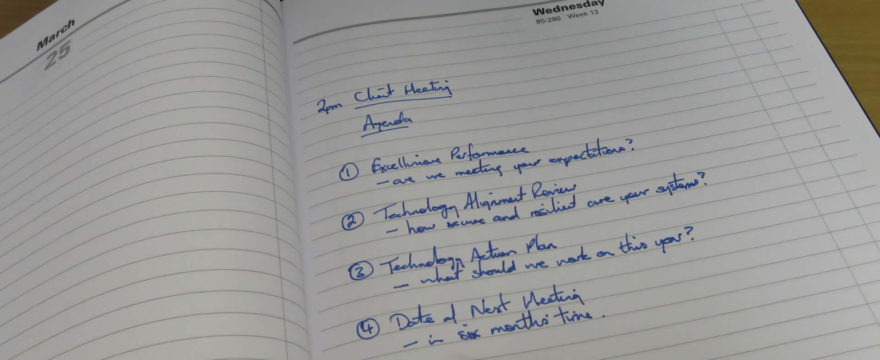 March
25
Wednesday
85-280 Week 13
2pm Client Meeting
Agenda
① Excellimore Performance
- are we meeting your expectations?
② Technology Alignment Review
- how secure and resilient are your systems?
③ Technology Action Plan
- what should we work on this year?
④ Date of Next Meeting
- in six months' time.